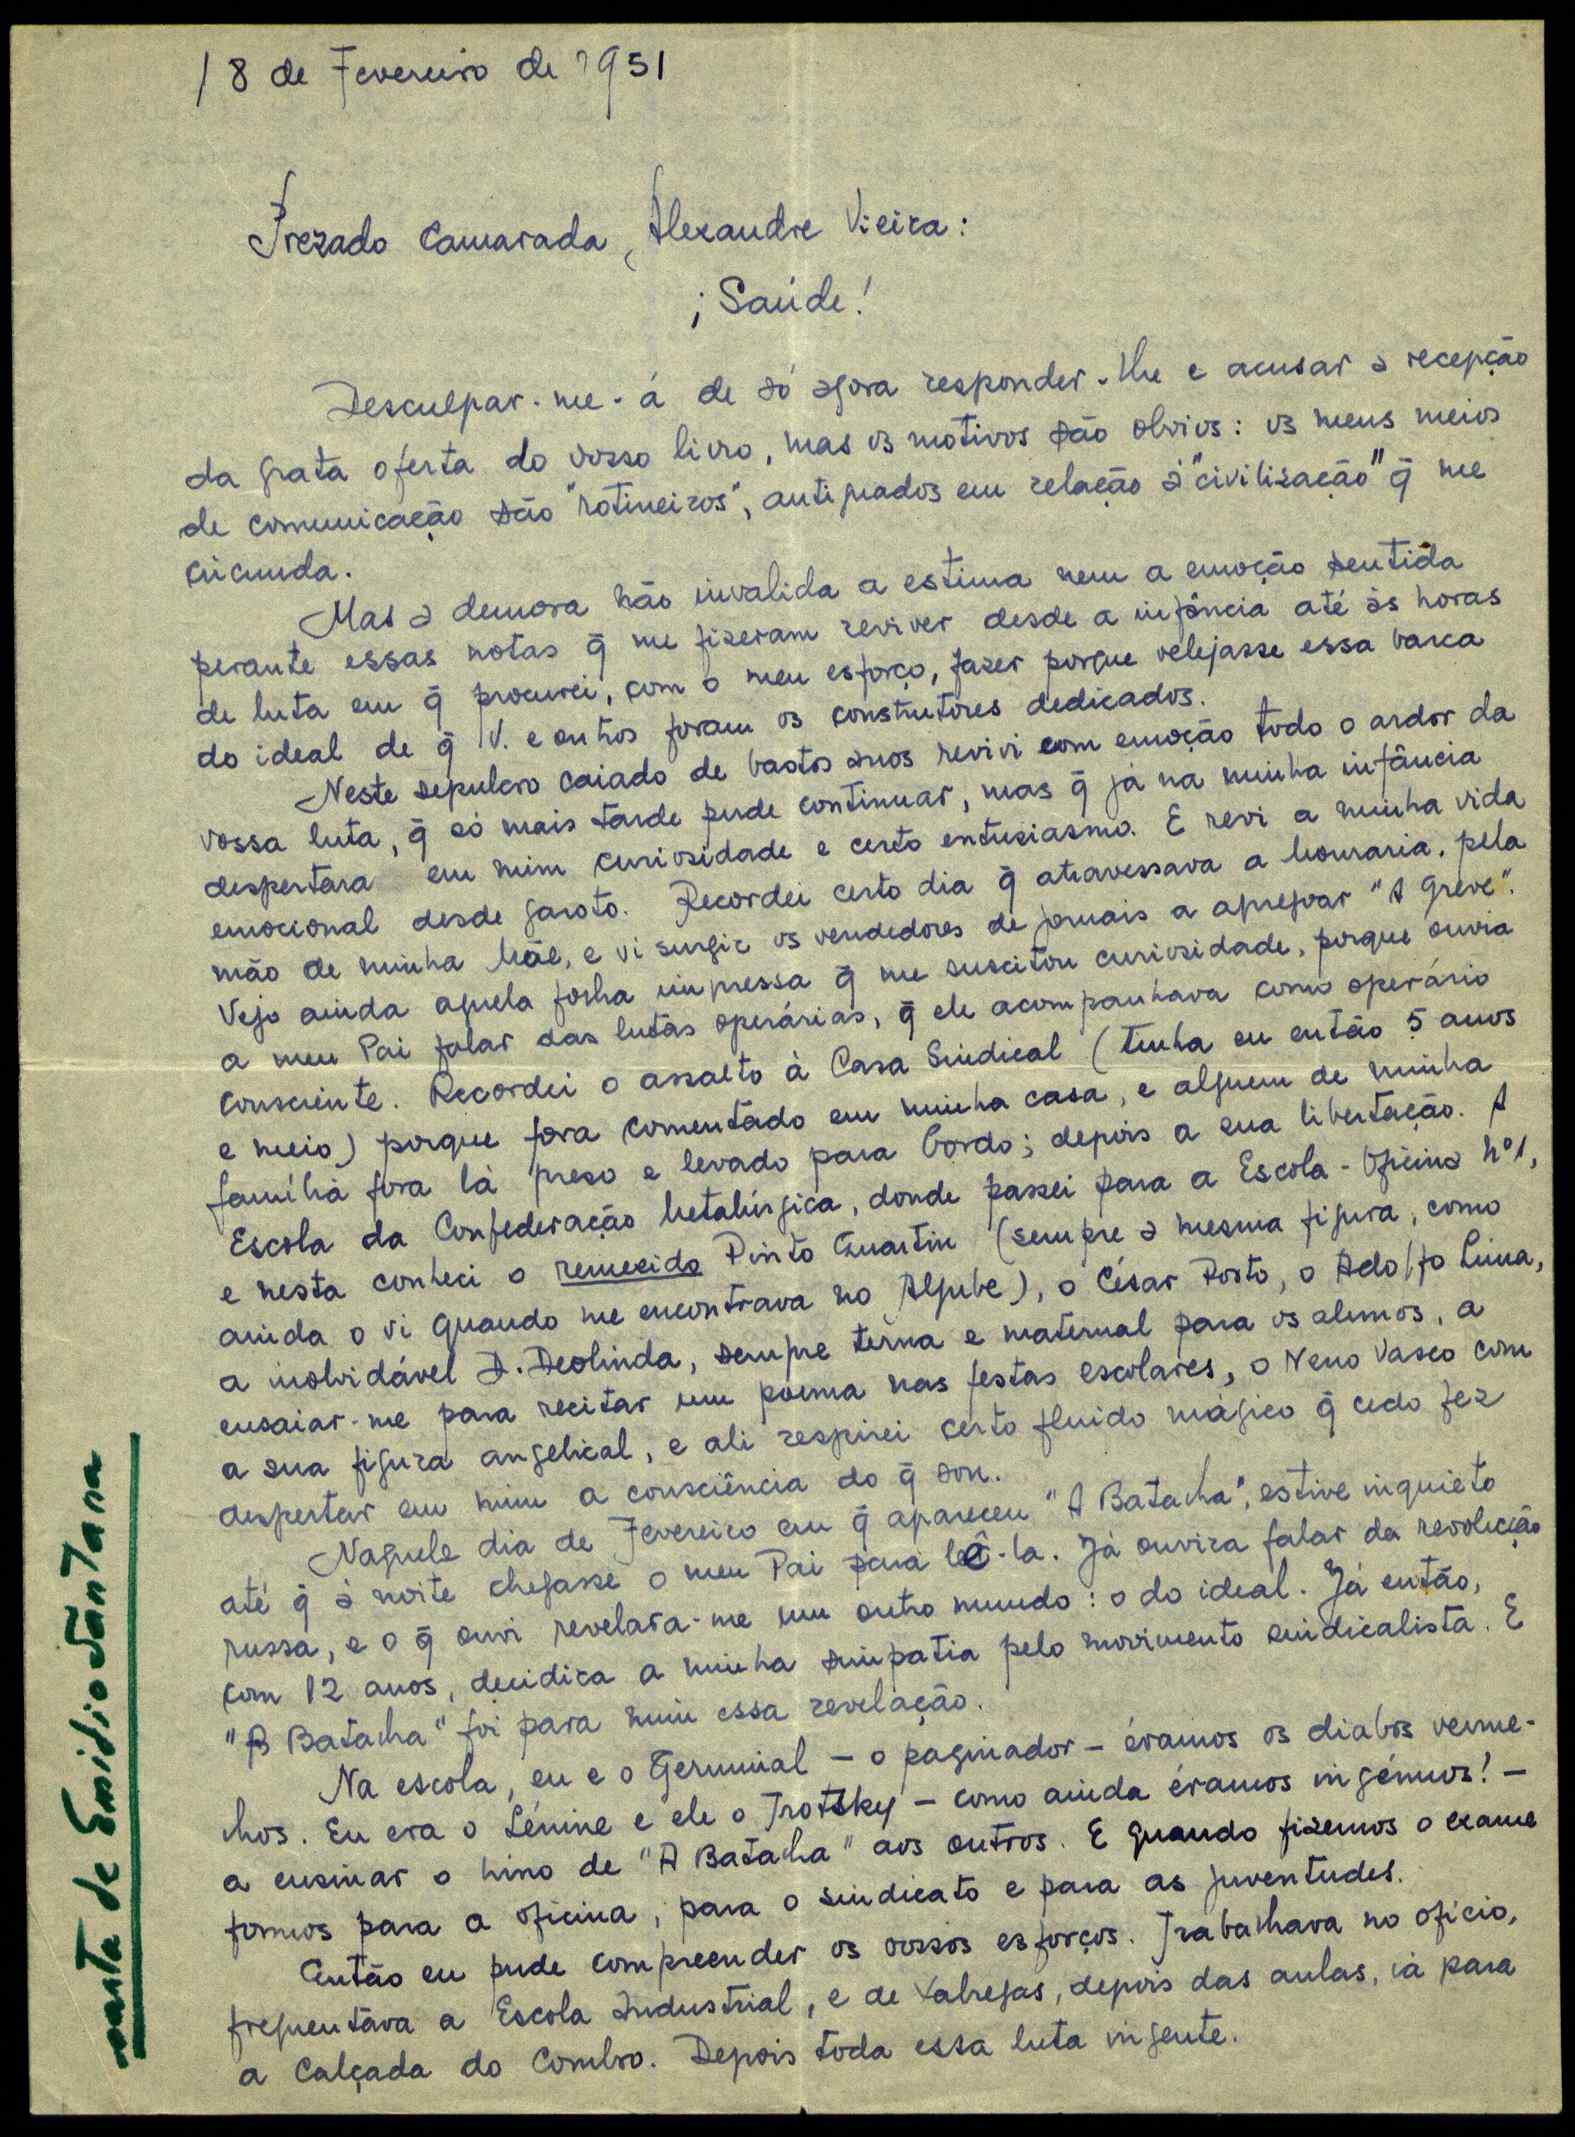 18 de Fevereiro de 1951
Prezado Camarada, Alexandre Vieira:
¡ Saúde!
Desculpar-me-á de só agora responder-lhe e acusar a recepção
da grata oferta do vosso livro, mas os motivos são obvios: os meus meios
de comunicação são "rotineiros", antiquados em relação à "civilização" q̄ me
circunda.
Mas a demora não invalida a estima nem a emoção sentida
perante essas notas q̄ me fizeram reviver desde a infância até às horas
de luta em q̄ procurei, com o meu esforço, fazer porque velejasse essa barca
do ideal de q̄ V. e outros foram os construtores dedicados.
Neste sepulcro caiado de vastos anos revivi com emoção todo o ardor da
vossa luta, q̄ só mais tarde pude continuar, mas q̄ já na minha infância
despertara em mim curiosidade e certo entusiasmo. E revi a minha vida
emocional desde garoto. Recordei certo dia q̄ atravessava a Mouraria, pela
mão de minha Mãe, e vi surgir os vendedores de jornais a apregoar "A Greve".
Vejo ainda aquela folha impressa q̄ me suscitou curiosidade, porque ouvia
a meu Pai falar das lutas operárias, q̄ ele acompanhava como operário
consciente. Recordei o assalto à Casa Sindical (tinha eu então 5 anos
e meio) porque fora comentado em minha casa, e alguem de minha
família fora lá preso e levado para bordo; depois a sua libertação. A
Escola da Confederação Metalúrgica, donde passei para a Escola-Oficina Nº1,
e nesta conheci o remexido Pinto Quartin (sempre a mesma figura, como
ainda o vi quando me encontrava no Aljube), o César Porto, o Adolfo Lima,
a inolvidável D. Deolinda, sempre terna e maternal para os alunos, a
ensaiar-me para recitar um poema nas festas escolares, o Neno Vasco com
a sua figura angelical, e ali respirei certo fluido mágico q̄ cedo fez
despertar em mim a consciência do q̄ sou.
Naquele dia de Fevereiro em q̄ apareceu "A Batalha", estive inquieto
até q̄ à noite chegasse o meu Pai para lê-la. Já ouvira falar da revolução
russa, e o q̄ ouvi revelara-me um outro mundo: o do ideal. Já então,
com 12 anos, decidira a minha simpatia pelo movimento sindicalista. E
"A Batalha" foi para mim essa revelação.
Na escola, eu e o Germinal - o paginador - éramos os diabos verme-
lhos. Eu era o Lénine e ele o Trotsky - como ainda éramos ingénuos! -
a ensinar o hino de "A Batalha" aos outros. E quando fizemos o exame
fomos para a oficina, para o sindicato e para as juventudes.
Então eu pude compreender os vossos esforços. Trabalhava no ofício,
frequentava a Escola Industrial, e de Xabregas, depois das aulas, ia para
a Calçada do Combro. Depois toda essa luta ingente.
carta de Emídio Santana